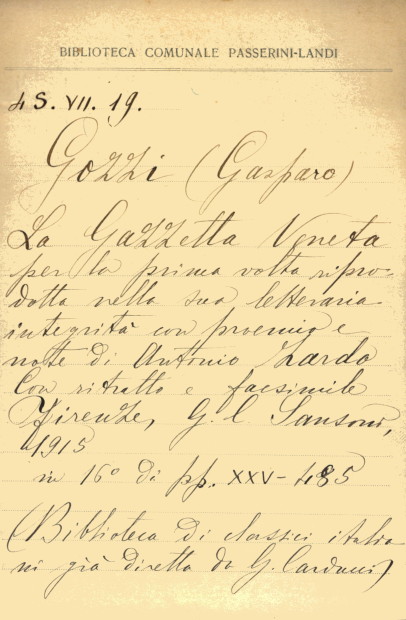 BIBLIOTECA COMUNALE PASSERINI-LANDI
4 S. VII. 19.
Gozzi (Gasparo)
La Gazzetta Veneta
per la prima volta ripro-
dotta nella sua letteraria
integrità con proemio e
note di Antonio Zardo
Con ritratto e facsimile
Firenze, G. C. Sansoni,
1915
in 16º di pp. XXV - 485
(Biblioteca di classici italia
ni già diretta da G. Carducci)